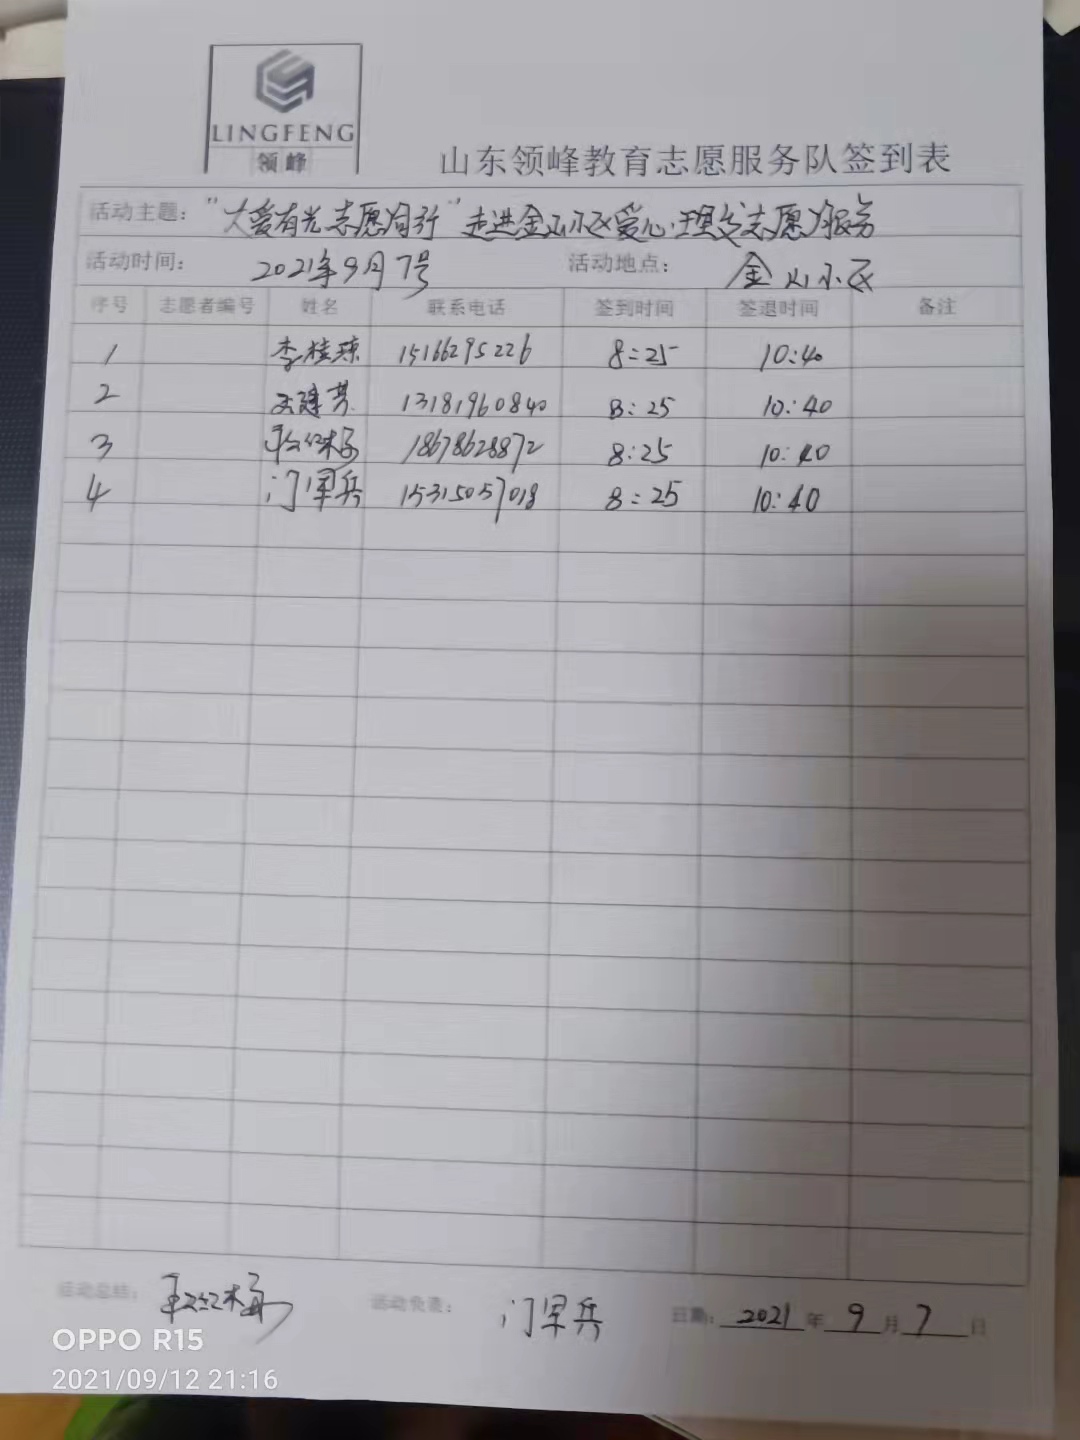 LINGFENG
领峰
山东领峰教育志愿服务队签到表
活动主题："大爱有光 志愿同行"走进金山小区爱心理发志愿服务
活动时间： 2021年9月7号 活动地点： 金山小区
序号 志愿者编号 姓名 联系电话 签到时间 签退时间 备注
1 李桂珠 15166295226 8:25 10:40
2 建芳 13181960840 8:25 10:40
3 红梅 18678628872 8:25 10:40
4 门军兵 15315057018 8:25 10:40
活动总结： 红梅 活动负责： 门军兵 日期： 2021 年 9 月 7 日
OPPO R15
2021/09/12 21:16